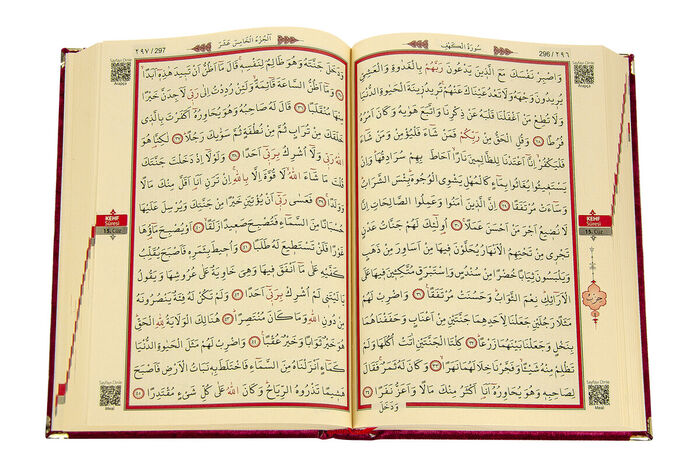 سُورَةُ الْكَهْفِ
296 / ٢٩٦
وَاصْبِرْ نَفْسَكَ مَعَ الَّذِينَ يَدْعُونَ رَبَّهُمْ بِالْغَدٰوةِ وَالْعَشِيِّ
يُرِيدُونَ وَجْهَهُ وَلَا تَعْدُ عَيْنَاكَ عَنْهُمْ تُرِيدُ زِينَةَ الْحَيٰوةِ الدُّنْيَا
وَلَا تُطِعْ مَنْ اَغْفَلْنَا قَلْبَهُ عَنْ ذِكْرِنَا وَاتَّبَعَ هَوٰيهُ وَكَانَ اَمْرُهُ
فُرُطًا ٢٨ وَقُلِ الْحَقُّ مِنْ رَبِّكُمْ فَمَنْ شَٓاءَ فَلْيُؤْمِنْ وَمَنْ شَٓاءَ
فَلْيَكْفُرْ اِنَّٓا اَعْتَدْنَا لِلظَّالِمِينَ نَارًا اَحَاطَ بِهِمْ سُرَادِقُهَا وَاِنْ
يَسْتَغِيثُوا يُغَاثُوا بِمَٓاءٍ كَالْمُهْلِ يَشْوِي الْوُجُوهَ بِئْسَ الشَّرَابُ
وَسَٓاءَتْ مُرْتَفَقًا ٢٩ اِنَّ الَّذِينَ اٰمَنُوا وَعَمِلُوا الصَّالِحَاتِ اِنَّا
لَا نُضِيعُ اَجْرَ مَنْ اَحْسَنَ عَمَلًا ٣٠ اُو۬لٰٓئِكَ لَهُمْ جَنَّاتُ عَدْنٍ
تَجْرِي مِنْ تَحْتِهِمُ الْاَنْهَارُ يُحَلَّوْنَ فِيهَا مِنْ اَسَاوِرَ مِنْ ذَهَبٍ
وَيَلْبَسُونَ ثِيَابًا خُضْرًا مِنْ سُنْدُسٍ وَاِسْتَبْرَقٍ مُتَّكِـِٔينَ فِيهَا عَلَى
الْاَرَٓائِكِ نِعْمَ الثَّوَابُ وَحَسُنَتْ مُرْتَفَقًا ٣١ وَاضْرِبْ لَهُمْ
مَثَلًا رَجُلَيْنِ جَعَلْنَا لِاَحَدِهِمَا جَنَّتَيْنِ مِنْ اَعْنَابٍ وَحَفَفْنَاهُمَا
بِنَخْلٍ وَجَعَلْنَا بَيْنَهُمَا زَرْعًا ٣٢ كِلْتَا الْجَنَّتَيْنِ اٰتَتْ اُكُلَهَا وَلَمْ
تَظْلِمْ مِنْهُ شَيْـًٔا وَفَجَّرْنَا خِلَالَهُمَا نَهَرًا ٣٣ وَكَانَ لَهُ ثَمَرٌ فَقَالَ
لِصَاحِبِهِ وَهُوَ يُحَاوِرُهُ اَنَا۬ اَكْثَرُ مِنْكَ مَالًا وَاَعَزُّ نَفَرًا ٣٤
وَدَخَلَ
Sayfayı Dinle
Arapça
KEHF
Sûresi
15. Cüz
حزب
Sayfayı Dinle
Meal
اَلْجُزْءُ الْخَامِسَ عَشَرَ
٢٩٧ / 297
وَدَخَلَ جَنَّتَهُ وَهُوَ ظَالِمٌ لِنَفْسِهِ قَالَ مَٓا اَظُنُّ اَنْ تَبِيدَ هٰذِهِ اَبَدًا
٣٥ وَمَٓا اَظُنُّ السَّاعَةَ قَٓائِمَةً وَلَئِنْ رُدِدْتُ اِلٰى رَبِّي لَاَجِدَنَّ خَيْرًا
مِنْهَا مُنْقَلَبًا ٣٦ قَالَ لَهُ صَاحِبُهُ وَهُوَ يُحَاوِرُهُ اَكَفَرْتَ بِالَّذِي
خَلَقَكَ مِنْ تُرَابٍ ثُمَّ مِنْ نُطْفَةٍ ثُمَّ سَوّٰيكَ رَجُلًا ٣٧ لٰكِنَّا۬ هُوَ
اللّٰهُ رَبِّي وَلَٓا اُشْرِكُ بِرَبِّٓي اَحَدًا ٣٨ وَلَوْلَٓا اِذْ دَخَلْتَ جَنَّتَكَ
قُلْتَ مَا شَٓاءَ اللّٰهُ لَا قُوَّةَ اِلَّا بِاللّٰهِ اِنْ تَرَنِ اَنَا۬ اَقَلَّ مِنْكَ مَالًا
وَوَلَدًا ٣٩ فَعَسٰى رَبِّٓي اَنْ يُؤْتِيَنِ خَيْرًا مِنْ جَنَّتِكَ وَيُرْسِلَ عَلَيْهَا
حُسْبَانًا مِنَ السَّمَٓاءِ فَتُصْبِحَ صَعِيدًا زَلَقًا ٤٠ اَوْ يُصْبِحَ مَٓاؤُ۬هَا
غَوْرًا فَلَنْ تَسْتَطِيعَ لَهُ طَلَبًا ٤١ وَاُحِيطَ بِثَمَرِهِ فَاَصْبَحَ يُقَلِّبُ
كَفَّيْهِ عَلٰى مَٓا اَنْفَقَ فِيهَا وَهِيَ خَاوِيَةٌ عَلٰى عُرُوشِهَا وَيَقُولُ
يَا لَيْتَنِي لَمْ اُشْرِكْ بِرَبِّٓي اَحَدًا ٤٢ وَلَمْ تَكُنْ لَهُ فِئَةٌ يَنْصُرُونَهُ
مِنْ دُونِ اللّٰهِ وَمَا كَانَ مُنْتَصِرًا ٤٣ هُنَالِكَ الْوَلَايَةُ لِلّٰهِ الْحَقِّ
هُوَ خَيْرٌ ثَوَابًا وَخَيْرٌ عُقْبًا ٤٤ وَاضْرِبْ لَهُمْ مَثَلَ الْحَيٰوةِ الدُّنْيَا
كَمَٓاءٍ اَنْزَلْنَاهُ مِنَ السَّمَٓاءِ فَاخْتَلَطَ بِهِ نَبَاتُ الْاَرْضِ فَاَصْبَحَ
هَشِيمًا تَذْرُوهُ الرِّيَاحُ وَكَانَ اللّٰهُ عَلٰى كُلِّ شَيْءٍ مُقْتَدِرًا ٤٥
Sayfayı Dinle
Arapça
KEHF
Sûresi
15. Cüz
Sayfayı Dinle
Meal